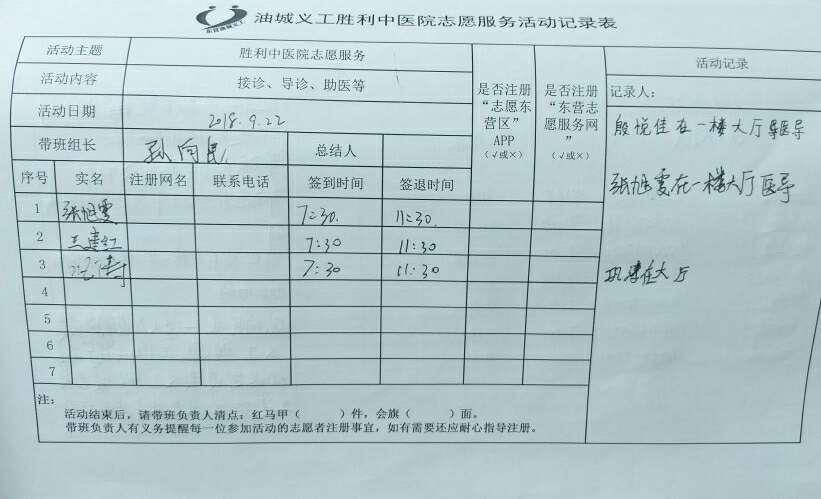 油城义工胜利中医院志愿服务活动记录表
东营油城义工
活动主题 胜利中医院志愿服务
活动内容 接诊、导诊、助医等
活动日期 2018.9.22
带班组长 孙向民 总结人
是否注册“志愿东营区”APP（√或×）
是否注册“东营志愿服务网”（√或×）
序号 实名 注册网名 联系电话 签到时间 签退时间
1 张旭霞 7:30. 11:30.
2 王建红 7:30 11:30
3 7:30 11:30
4
5
6
7
活动记录
记录人：
殷悦佳在一楼大厅导医导
张旭霞在一楼大厅医导
在大厅
注：
活动结束后，请带班负责人清点：红马甲（ ）件，会旗（ ）面。
带班负责人有义务提醒每一位参加活动的志愿者注册事宜，如有需要还应耐心指导注册。